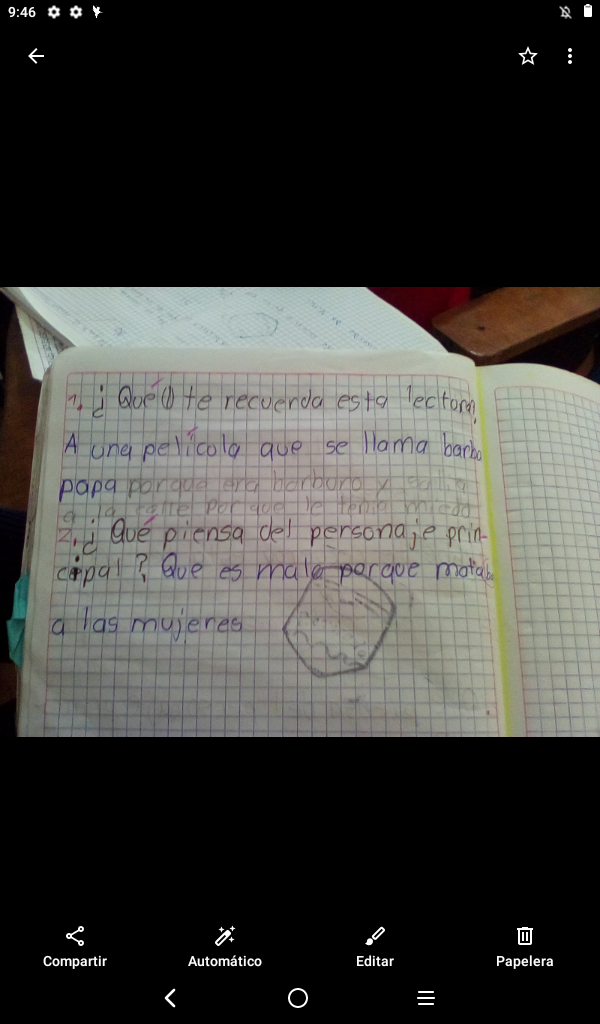 9:46
1. ¿Qué te recuerda esta lectora?
A una película que se llama barba
papa porque era barbaro y salia
a la calle porque le tenia miedo
2. ¿Qué piensa del personaje prin-
cipal? Que es malo porque mataba
a las mujeres
Compartir
Automático
Editar
Papelera